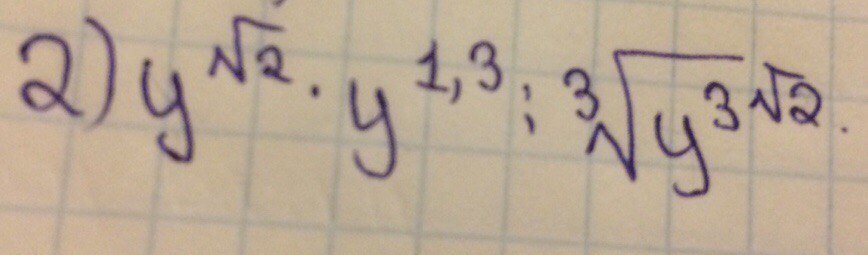 2) y^√2 · y^1,3 : ∛(y^3√2).